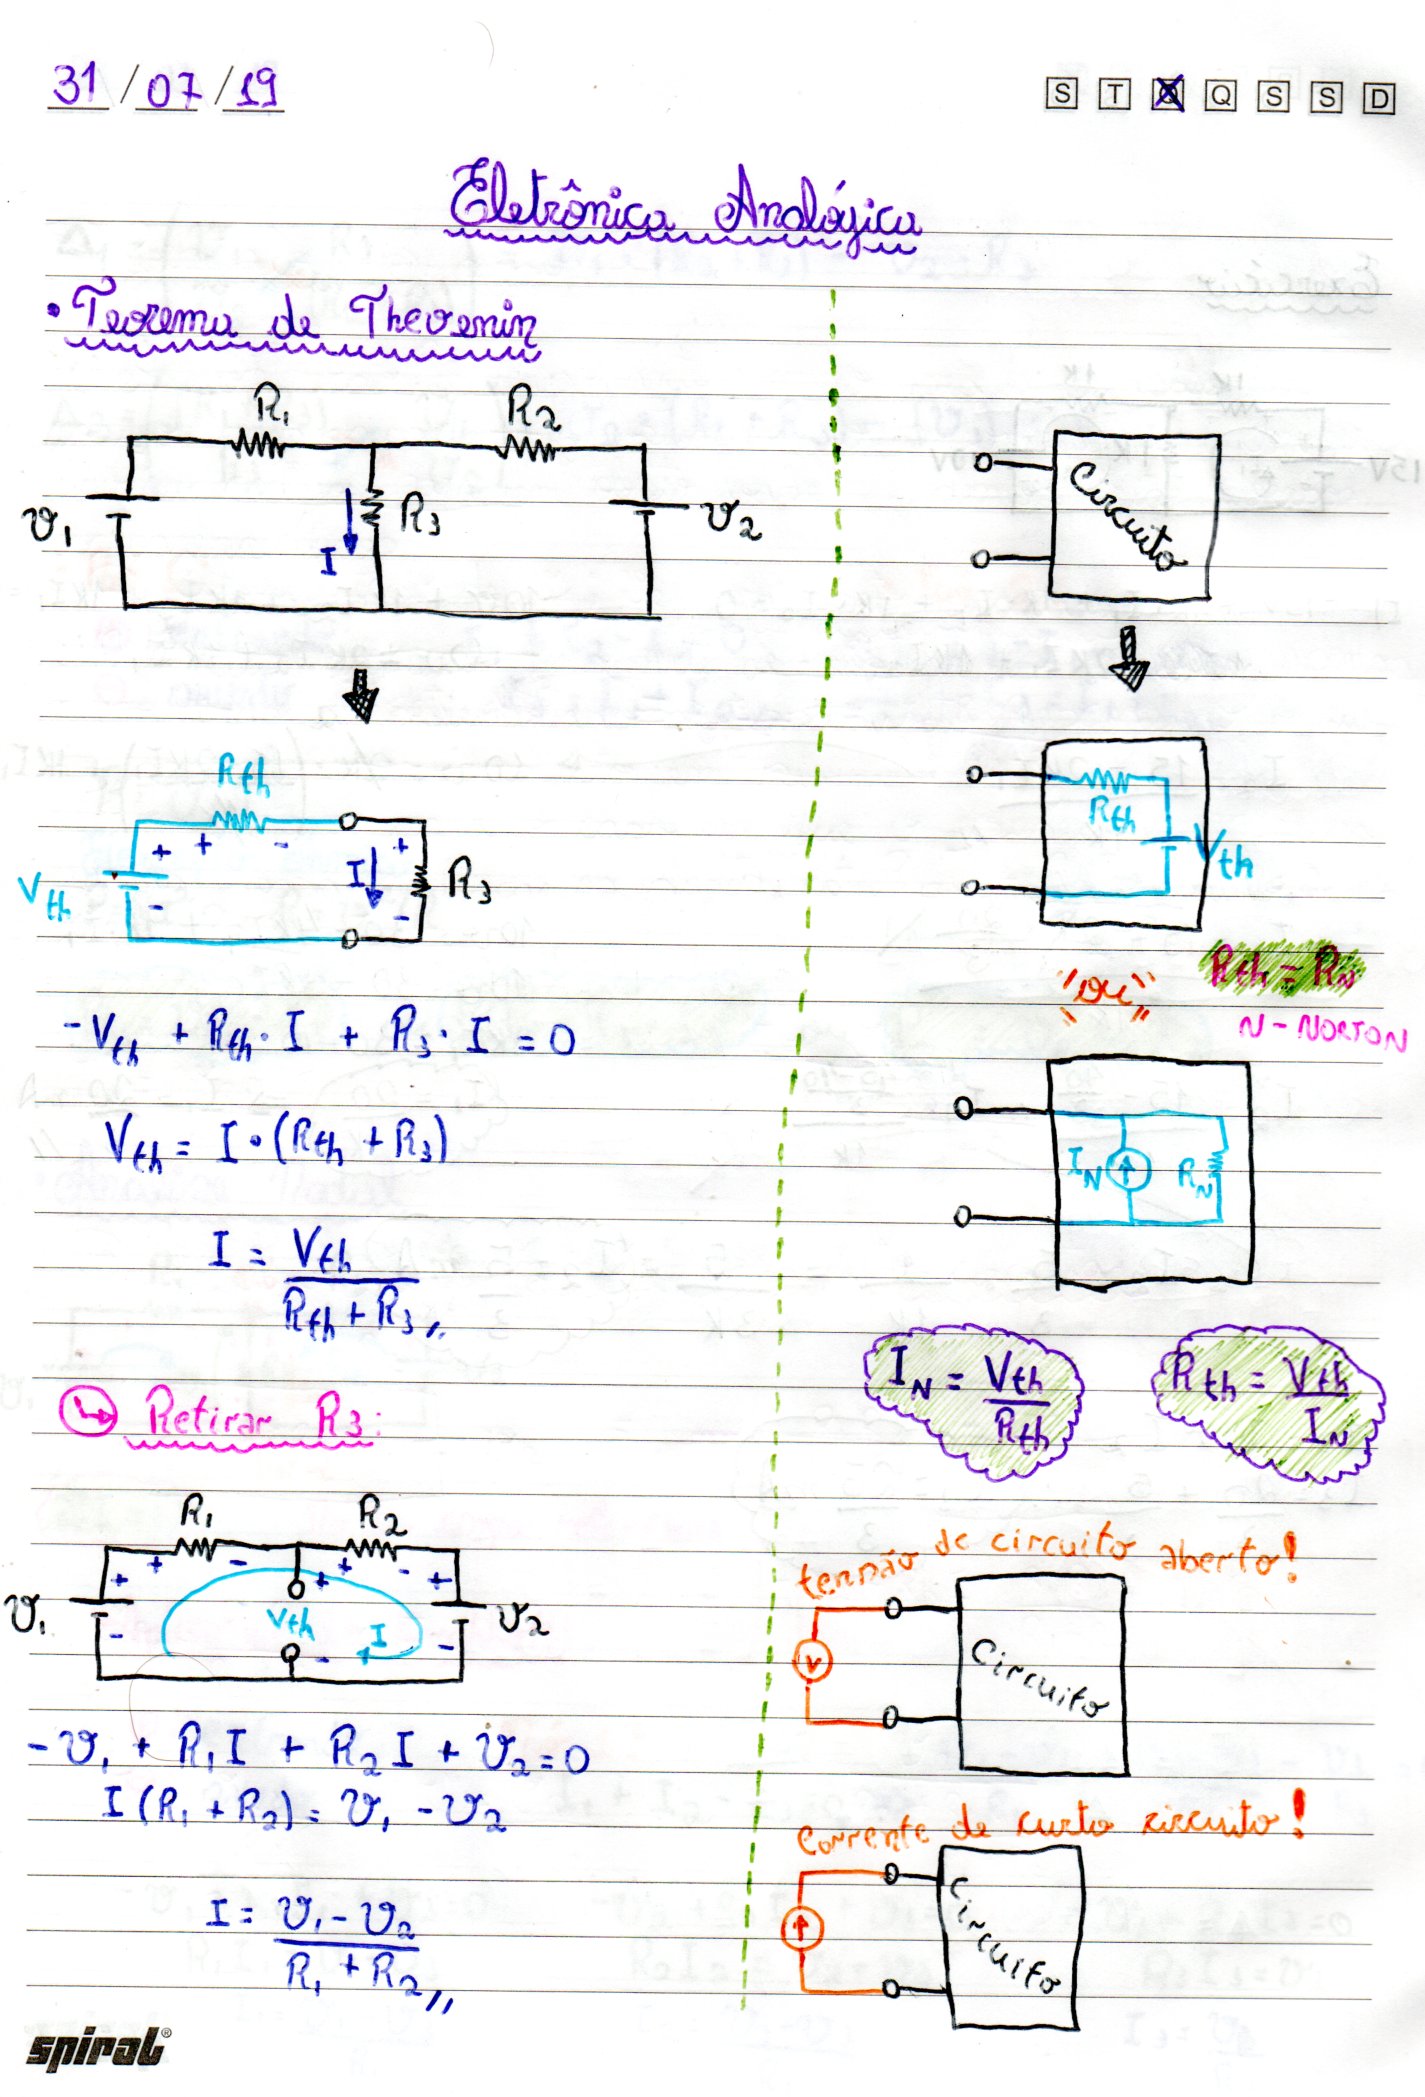 31/07/19
S T Q Q S S D
Eletrônica Analógica
• Teorema de Thevenin
R1
R2
V1
R3
I
V2
Rth
+ + -
+
Vth
I
R3
-
-
-Vth + Rth · I + R3 · I = 0
Vth = I · (Rth + R3)
I = Vth
Rth + R3 //
↳ Retirar R3:
R1
R2
+ - + -
+ + +
V1
Vth
I
V2
- - -
-V1 + R1 I + R2 I + V2 = 0
I (R1 + R2) = V1 - V2
I = V1 - V2
R1 + R2 //
Circuito
Rth
Vth
"ou"
Rth = RN
N - NORTON
IN
RN
IN = Vth
Rth
Rth = Vth
IN
tensão de circuito aberto!
V
Circuito
corrente de curto circuito!
Circuito
spiral®